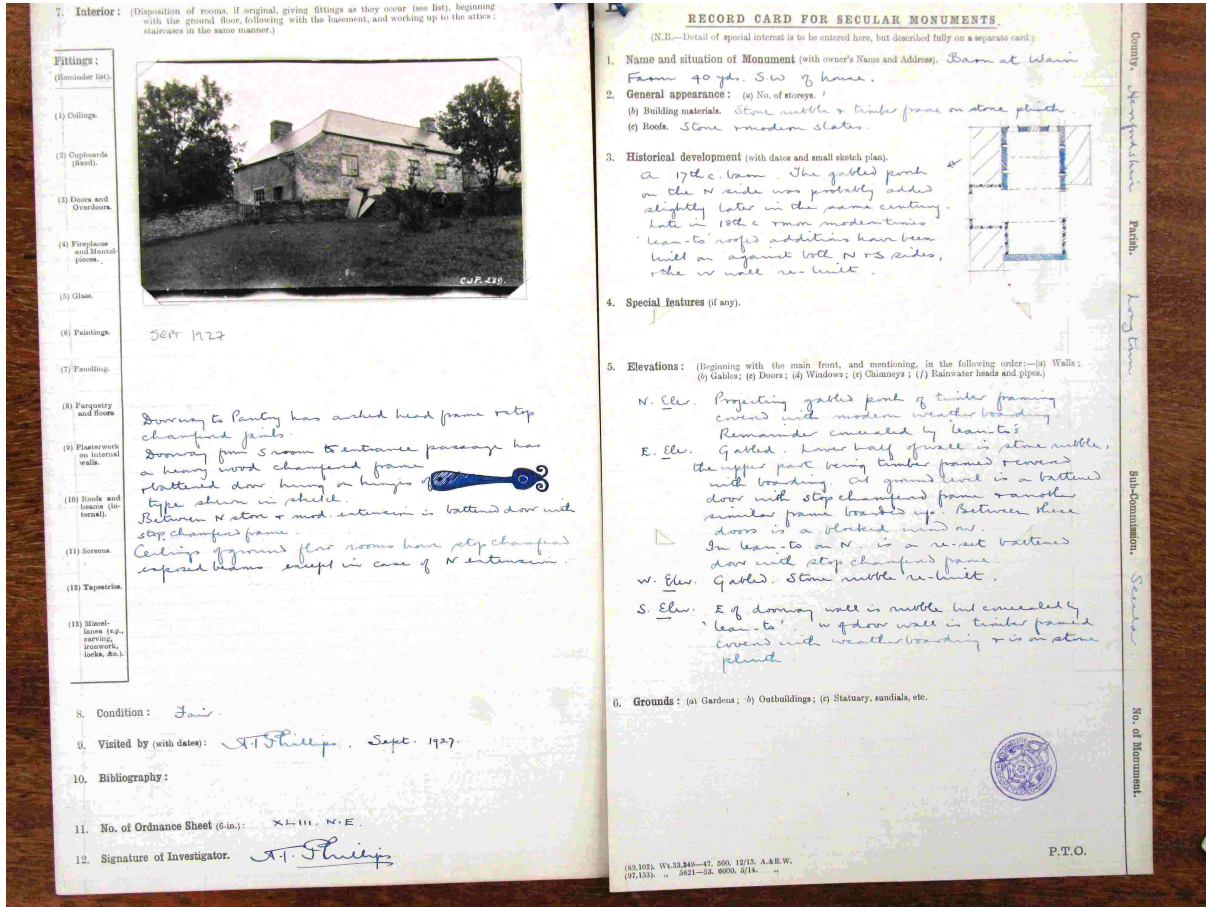 7. Interior: (Disposition of rooms, if original, giving fittings as they occur (see list), beginning
with the ground floor, following with the basement, and working up to the attics;
staircases in the same manner.)
Fittings:
(Reminder list).
(1) Ceilings.
(2) Cupboards
(fixed).
(3) Doors and
Overdoors.
(4) Fireplaces
and Mantel-
pieces.
(5) Glass.
(6) Paintings.
(7) Panelling.
(8) Parquetry
and floors
(9) Plasterwork
on internal
walls.
(10) Roofs and
beams (in-
ternal).
(11) Screens.
(12) Tapestries.
(13) Miscel-
lanea (e.g.,
carving,
ironwork,
locks, &c.).
CJP. 239.
SEPT 1927
Doorway to Pantry has arched head frame & stop
chamfered jambs.
Doorway from S room to entrance passage has
a heavy wood chamfered frame
& battened door hung on hinges of
type shewn in sketch.
Between N store & mod. extension is battened door with
stop chamfered frame.
Ceilings of ground floor rooms have stop chamfered
exposed beams except in case of N extension.
8. Condition: Fair.
9. Visited by (with dates): A.T. Phillips. Sept. 1927.
10. Bibliography:
11. No. of Ordnance Sheet (6-in.): XLIII. N.E.
12. Signature of Investigator. A.T. Phillips
RECORD CARD FOR SECULAR MONUMENTS.
(N.B.—Detail of special interest is to be entered here, but described fully on a separate card.)
1. Name and situation of Monument (with owner's Name and Address). Barn at Wain
Farm 40 yds. S.W of house.
2. General appearance: (a) No. of storeys. 1
(b) Building materials. Stone rubble & timber frame on stone plinth
(c) Roofs. Stone & modern slates.
3. Historical development (with dates and small sketch plan).
A 17th c. barn. The gabled porch
on the N side was probably added
slightly later in the same century.
Late in 18th c & in modern times
'lean-to' roofed additions have been
built on against both N & S sides,
& the W wall re-built.
4. Special features (if any).
5. Elevations: (Beginning with the main front, and mentioning, in the following order:—(a) Walls;
(b) Gables; (c) Doors; (d) Windows; (e) Chimneys; (f) Rainwater heads and pipes.)
N. Elev. Projecting gabled porch of timber framing
covered with modern weather boarding
Remainder concealed by 'lean-to's
E. Elev. Gabled. Lower half of wall is stone rubble,
the upper part being timber framed & covered
with boarding. At ground level is a battened
door with stop chamfered frame & another
similar frame boarded up. Between these
doors is a blocked window.
In lean-to on N. is a re-set battened
door with stop chamfered frame.
W. Elev. Gabled. Stone rubble re-built.
S. Elev. E of doorway wall is rubble but concealed by
'lean-to' W of door wall is timber framed
covered with weather boarding & is on stone
plinth.
6. Grounds: (a) Gardens; (b) Outbuildings; (c) Statuary, sundials, etc.
(89,102). Wt.33,349—47. 500. 12/13. A.&E.W.
(97,153). ,, 5621—53. 6000. 5/14. ,,
P.T.O.
County. Herefordshire
Parish. Longtown
Sub-Commission. Secular
No. of Monument.